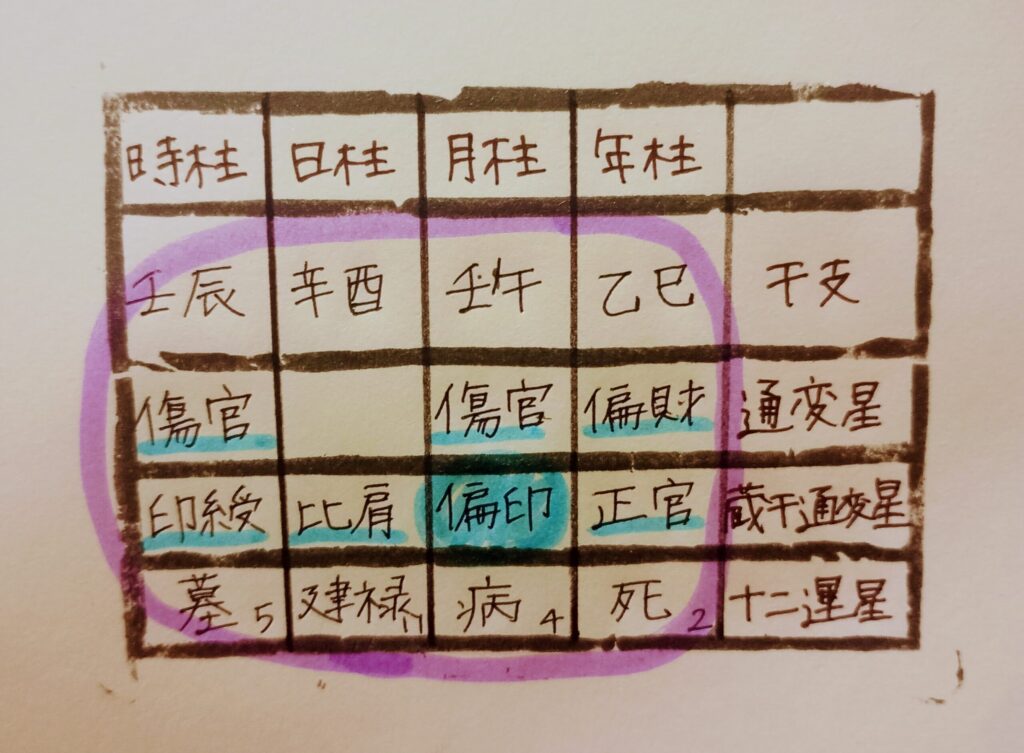 時柱 日柱 月柱 年柱
壬辰 辛酉 壬午 乙巳 干支
傷官 傷官 偏財 通変星
印綬 比肩 偏印 正官 蔵干通変星
墓5 建禄11 病4 死2 十二運星